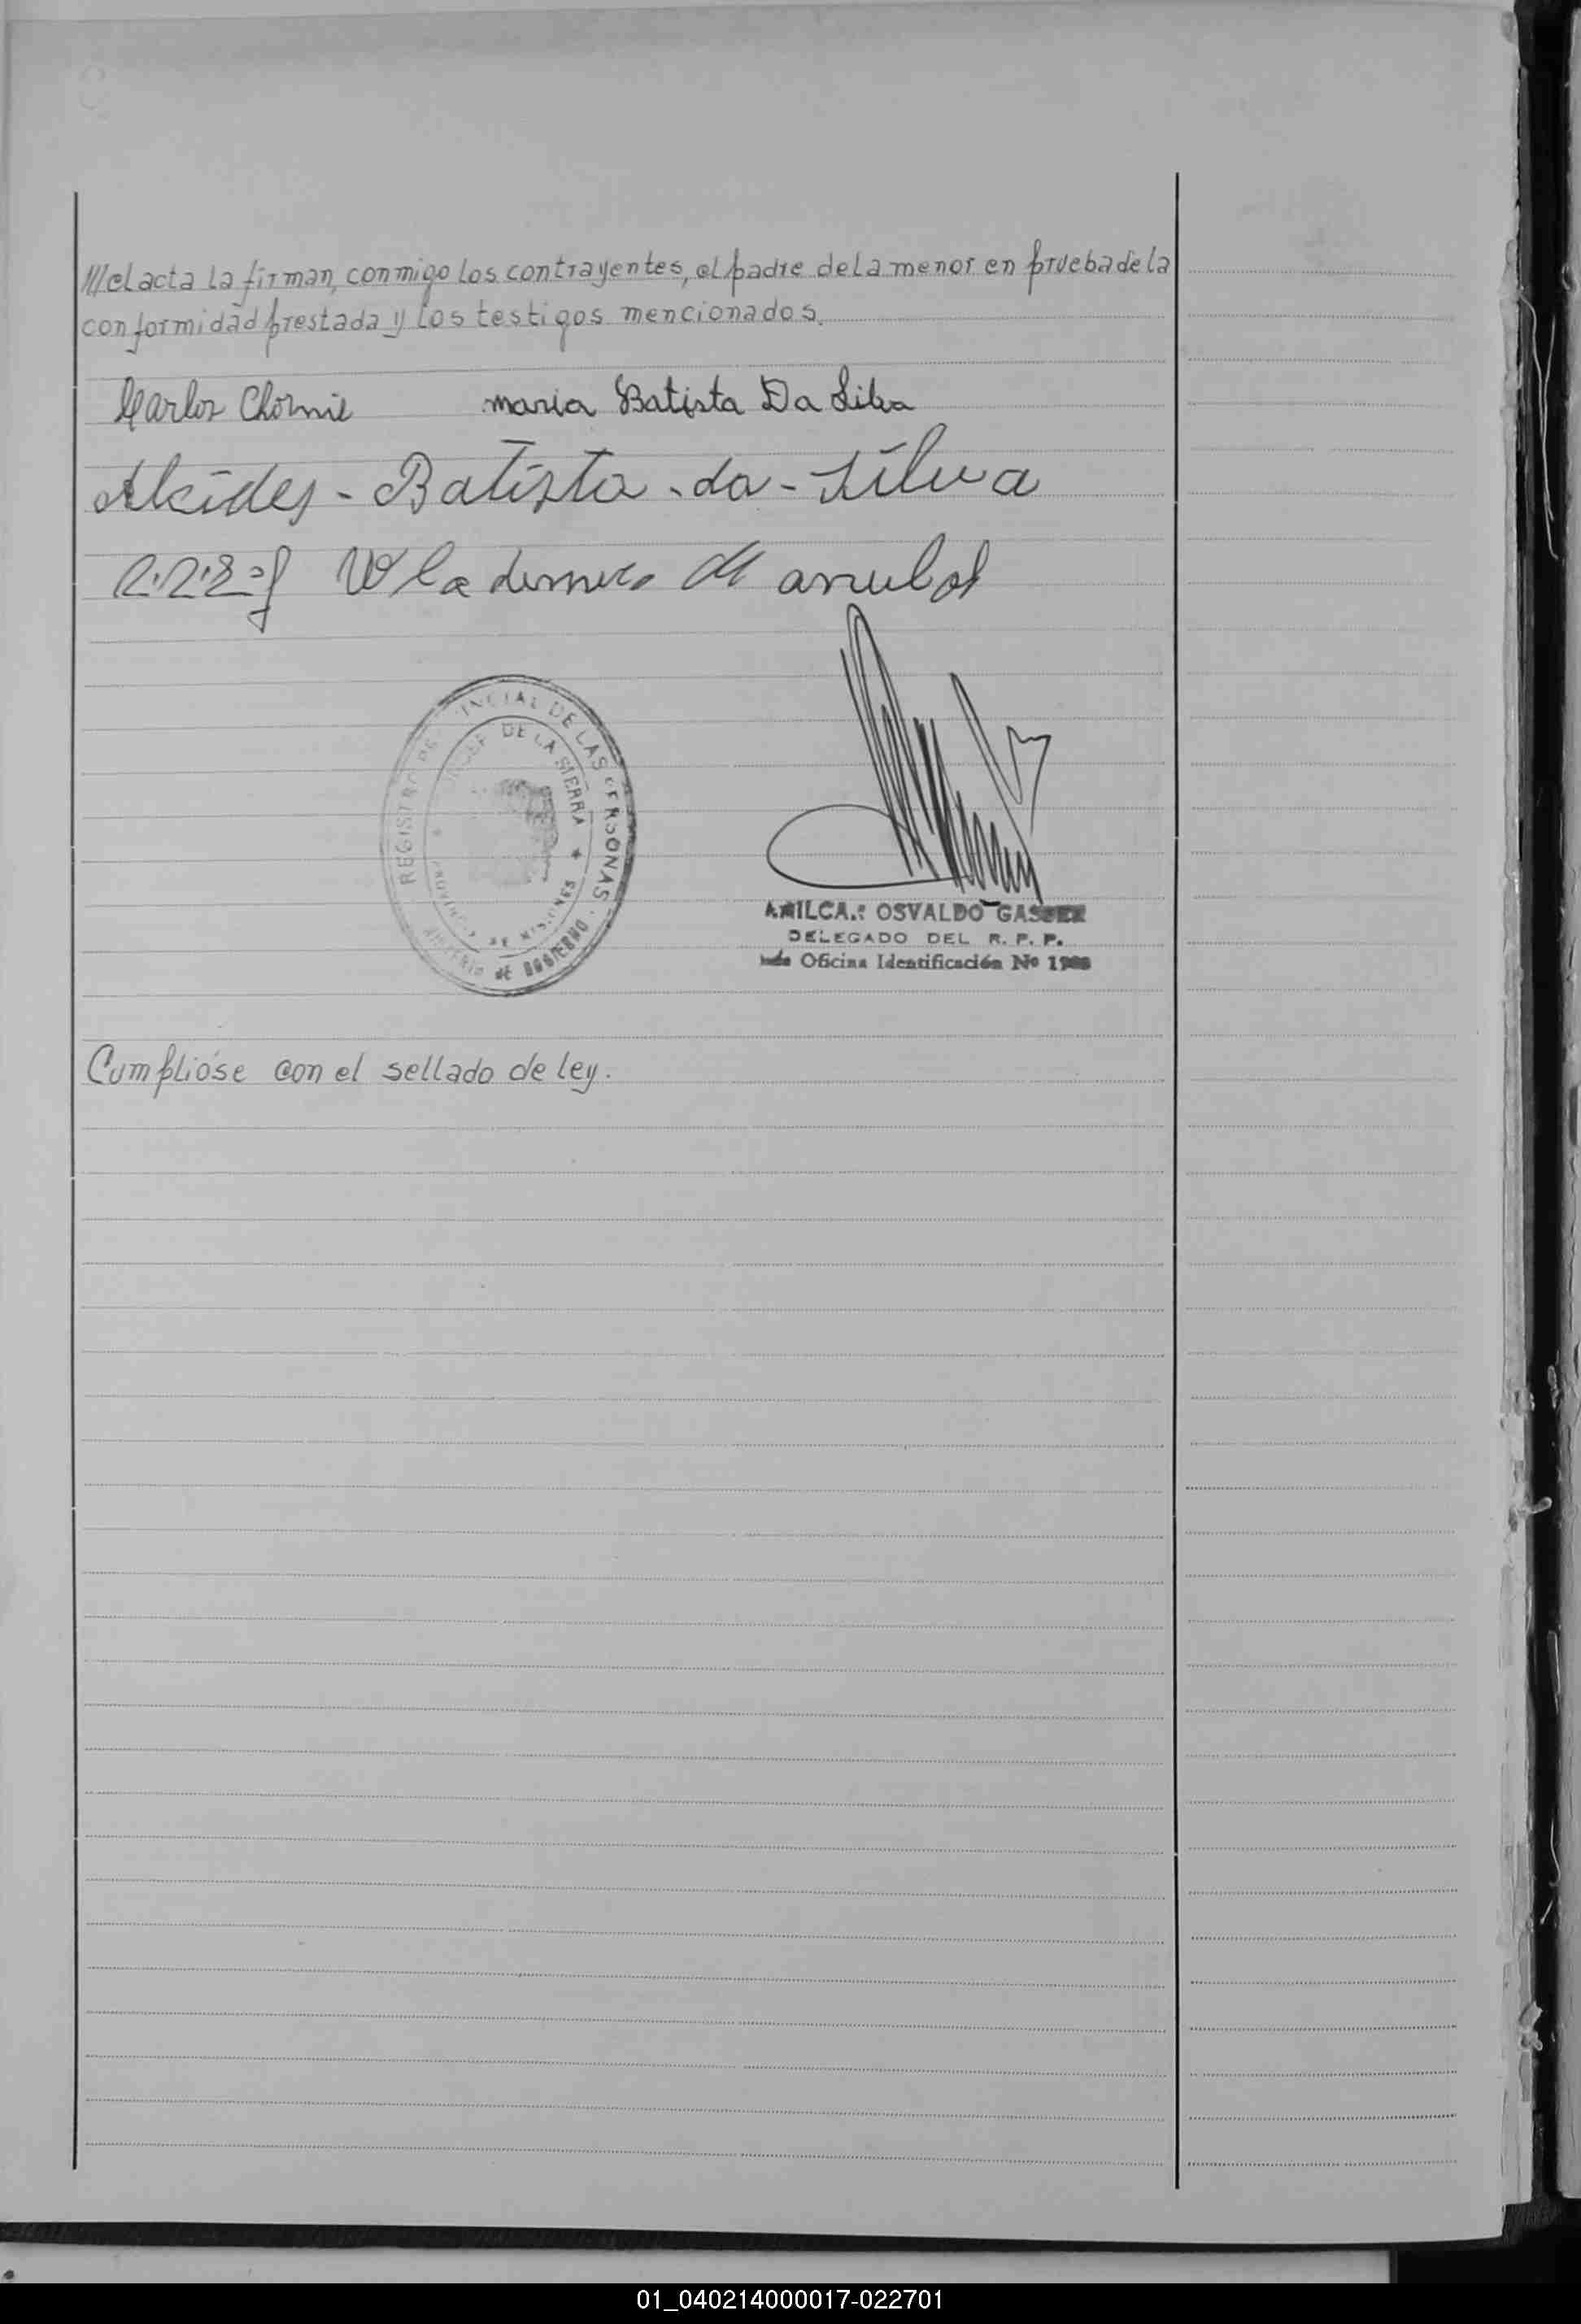 ///el acta la firman, conmigo los contrayentes, el padre de la menor en prueba de la
conformidad prestada y los testigos mencionados.
Carlos Chornie maria Batista Da Silva
Alcides - Batista - da - Silva
REGISTRO DE LAS PERSONAS
DE LA SIERRA
DE MISIONES
DE GOBIERNO
OSVALDO
DELEGADO DEL R. P. P.
Oficina Identificación Nº
Cumplióse con el sellado de ley.
01_040214000017-022701